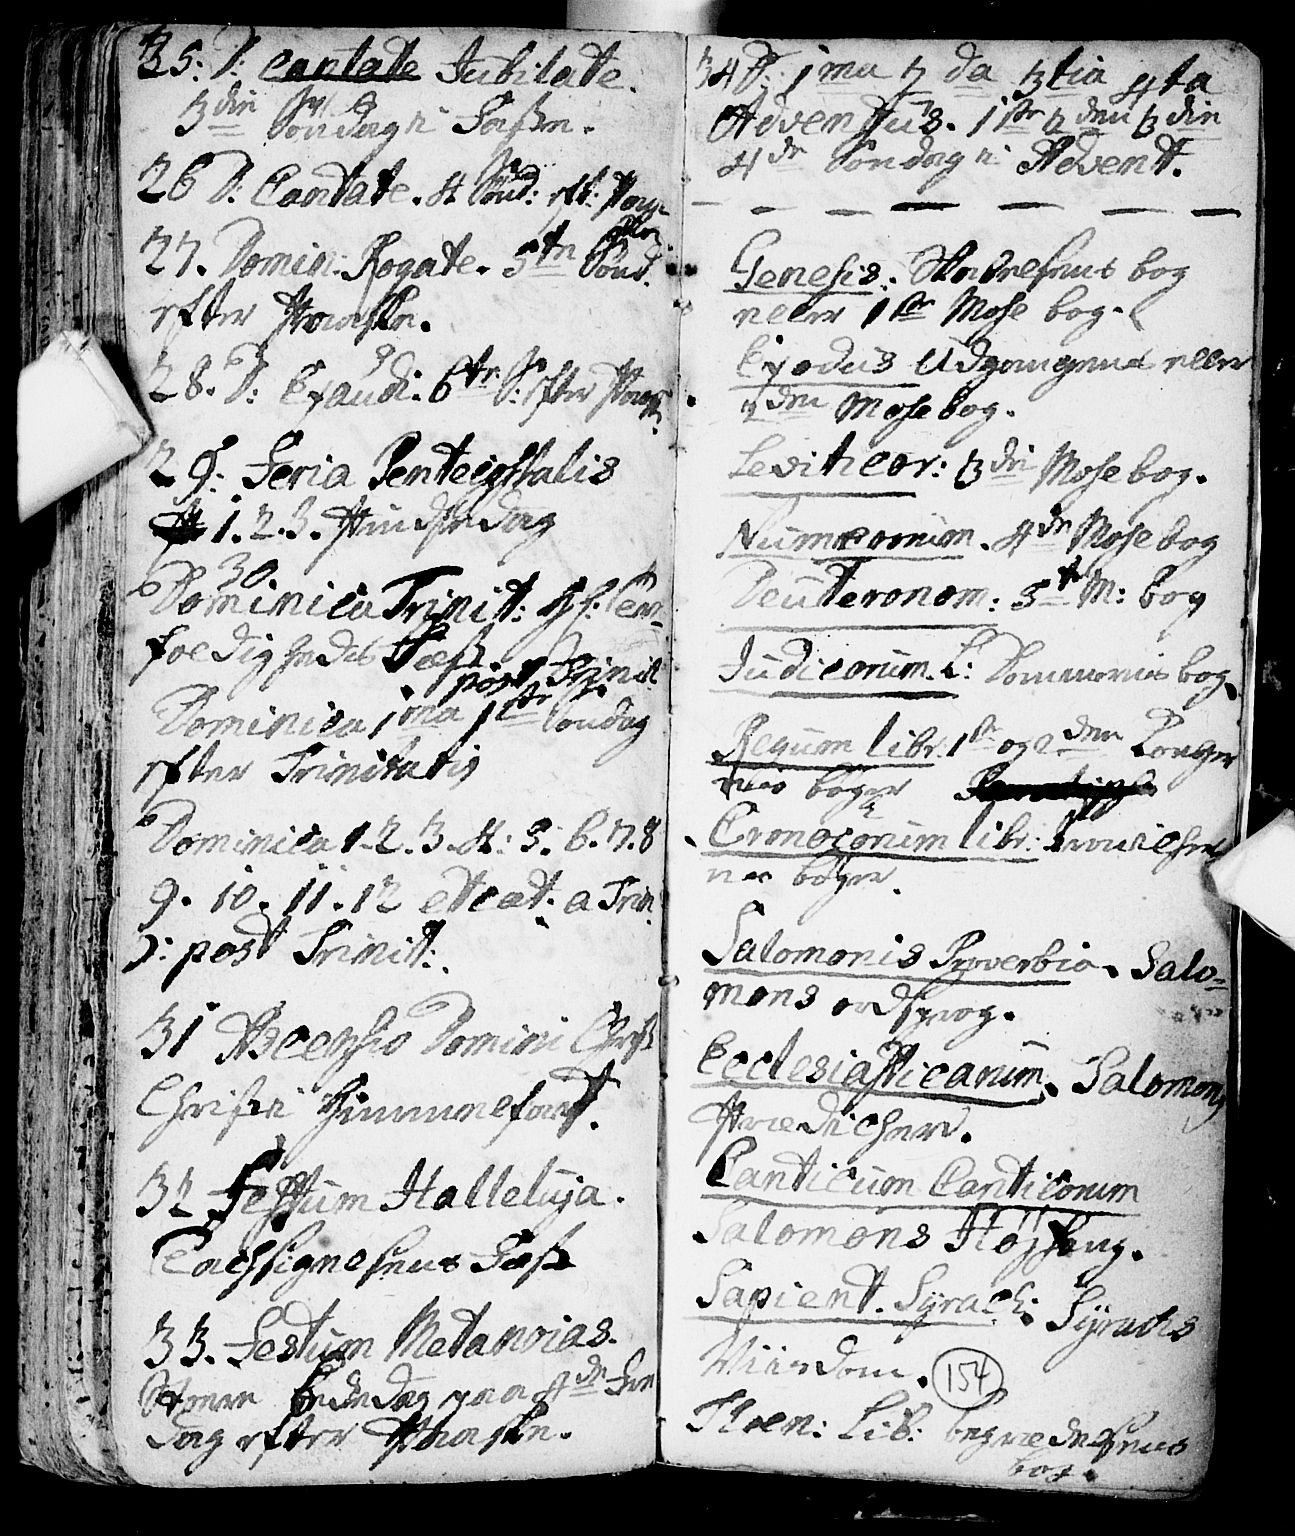 25: D: Cantate Jubilate.
3die Søndag i Faste.
26 D: Cantate. 4 Sønd: eft: Paaske
27. Domin: Rogate. 5te Sønd.
efter Paaske.
28. D: Exaudi. 6te S: efter Paaske
29: Feria Pentecostalis
1. 2. 3. Pindsedag
30.
Dominica Trinit: H: Tre-
foldigheds Fæst.
post Trinit
Dominica 1ma 1ste Søndag
efter Trinitatis
Dominica 1. 2. 3. 4: 5. 6. 7. 8
9. 10. 11. 12 etcæt. a Trin:
ↄ: post Trinit:
31 Ascensio Domini Christi
Christi Himmelfart.
32 Festum Halleluja.
Tachsigelsens Fæst
33. Festum Metanoias.
Bededag paa 4de Fre
dag efter Paaske.
34 D: 1ma 2da 3tia 4ta
Adventus. 1ste 2den 3die
4de Søndag i Advent.
Genesis. Skabelsens bog
eller 1ste Mose bog.
Exodus Udgangens eller
2den Mose bog.
Leviticor: 3die Mose bog.
Numerorum. 4de Mose bog
Deuteronom: 5te M: bog
Judicorum. L: Dommernes bog.
Regum libr. 1ste og 2den Konger
nes bøger
Cronocorum libr: Kronicher
nes bøger.
Salomonis Proverbia. Salo-
mons ordsprog.
Ecclesiasticarum. Salomons
Prædichere.
Canticum Canticorum
Salomons Højsang.
Sapient. Syrach: Syrachs
Viisdom.
154
Thren: Lib: begrædelsens
bog.